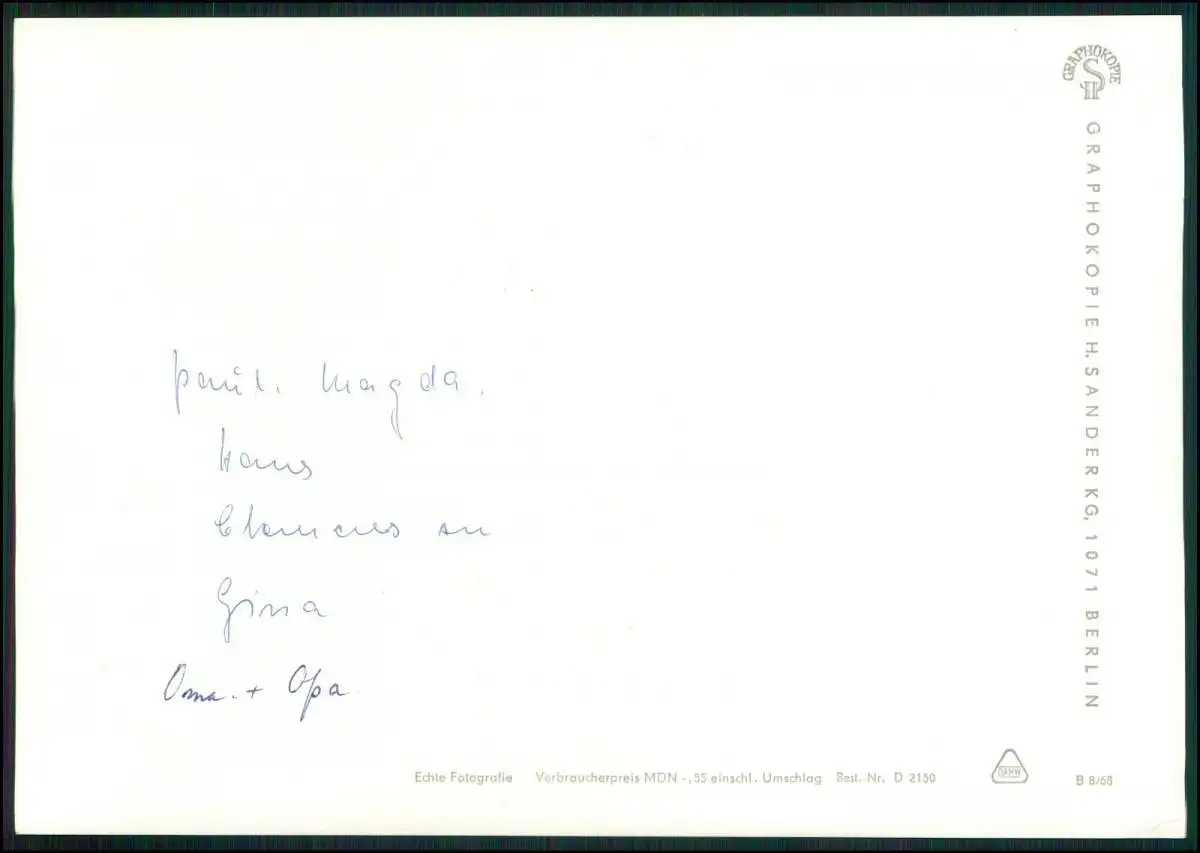 GRAPHOKOPIE
H S
GRAPHOKOPIE H. SANDER KG, 1071 BERLIN
Paul. Magda.
Hans
an
Gina
Oma. + Opa
Echte Fotografie Verbraucherpreis MDN -,55 einschl. Umschlag Best.-Nr. D 2150
DAMW
B 8/68